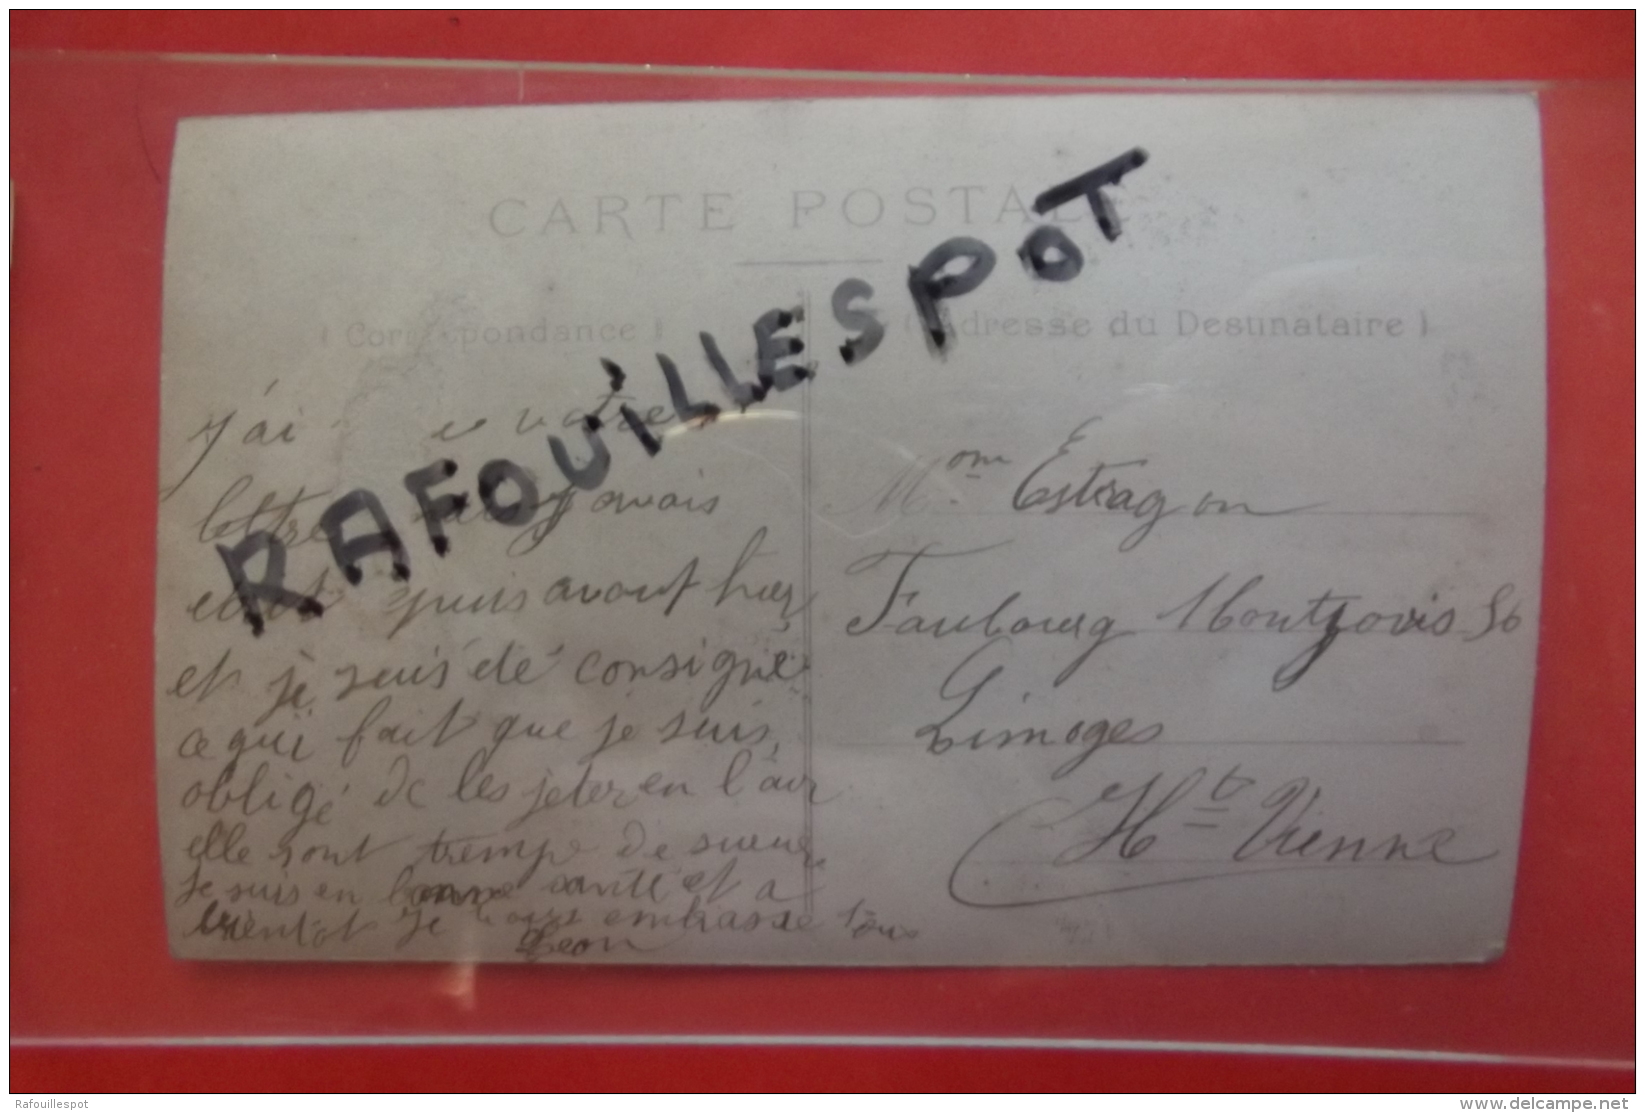 CARTE POSTALE
(Correspondance)
(Adresse du Destinataire)
RAFOUILLESPOT
j'ai votre
lettre j'avais
avant hier
et je suis été consigné
ce qui fait que je suis
obligé de les jeter en l'air
elle sont trempé de sueur
je suis en bonne santé et a
bientot je vous embrasse tous
Leon
Mme Estragon
Faubourg Montjovis 56
Limoges
Hte Vienne
Rafouillespot
www.delcampe.net